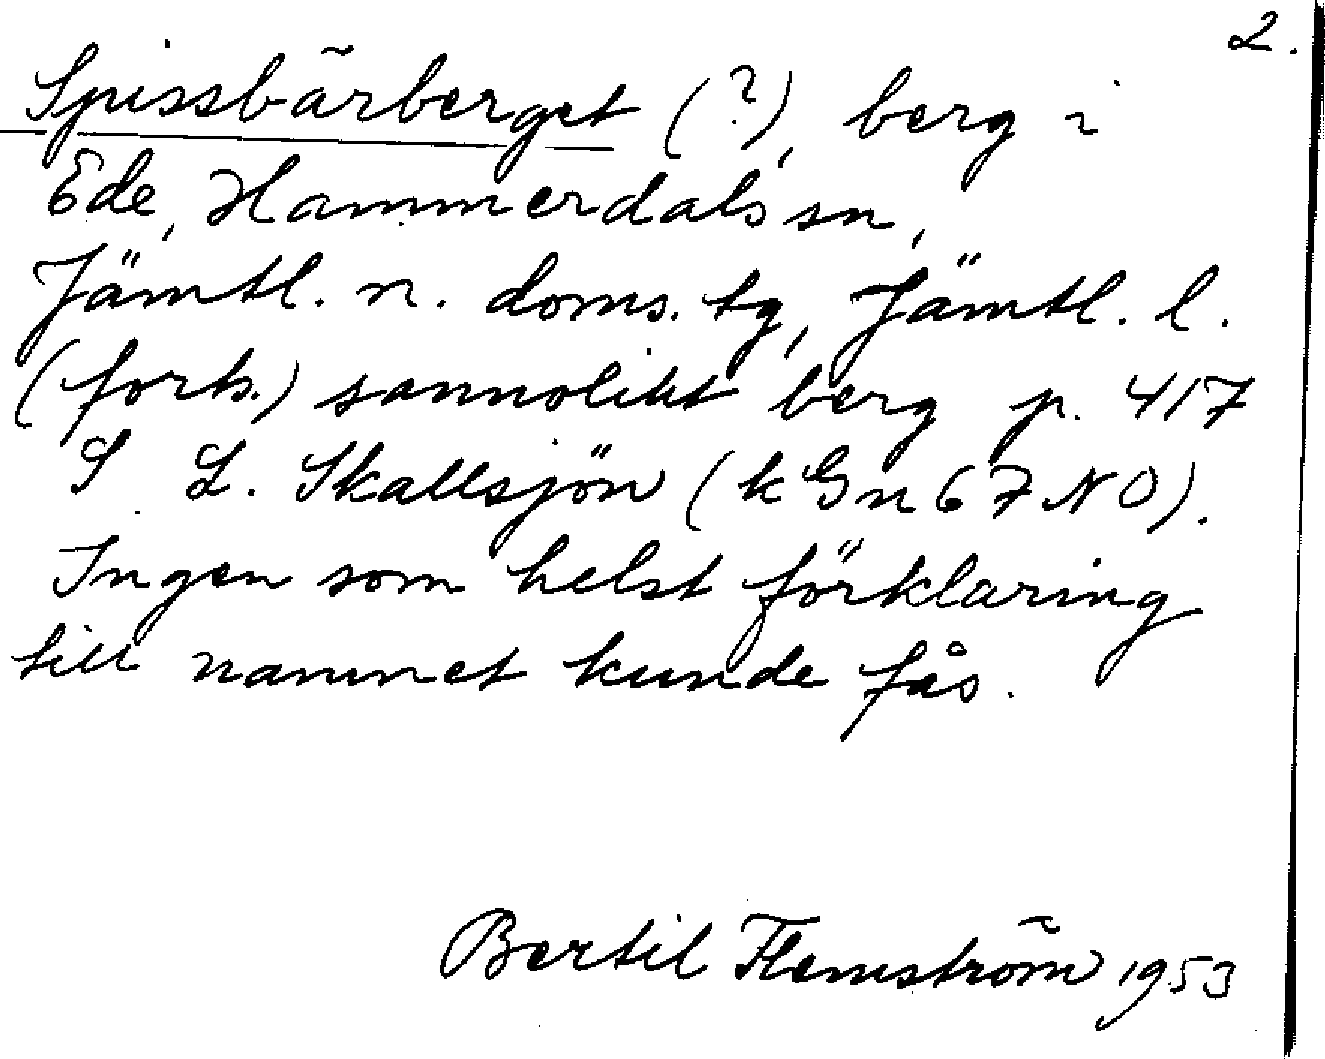 2.
Spissbärberget (?), berg i
Ede, Hammerdals sn,
Jämtl. n. doms. tg, Jämtl. l.
(forts.) sannolikt berg p. 417
S L. Skallsjön (k Gn 67 NO).
Ingen som helst förklaring
till namnet kunde fås.
Bertil Flemström 1953